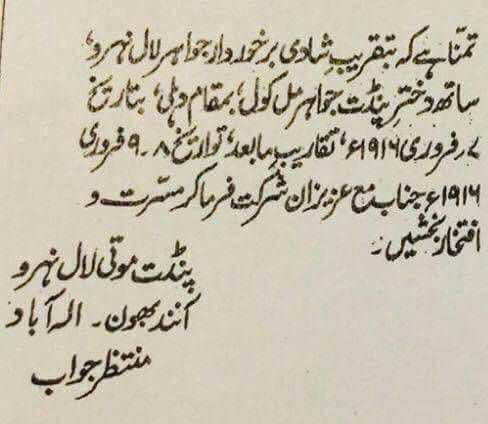 تمنّا ہے کہ بتقریبِ شادی برخوردار جواہر لال نہرو،
ساتھ دخترِ پنڈت جواہر مل کول، بمقام دہلی، بتاریخ
۷۔ فروری ۱۹۱۶ء، تقاریبِ مابعد، تواریخ ۸۔۹ فروری
۱۹۱۶ء جناب مع عزیزان شرکت فرما کر مسّرت و
افتخار بخشیں۔
پنڈت موتی لال نہرو
آنند بھون۔ الہ آباد
منتظرِ جواب